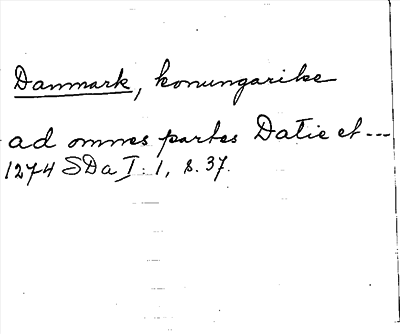 Danmark, konungarike
ad omnes partes Datie et ---
1274 SDa I:1, s. 37.